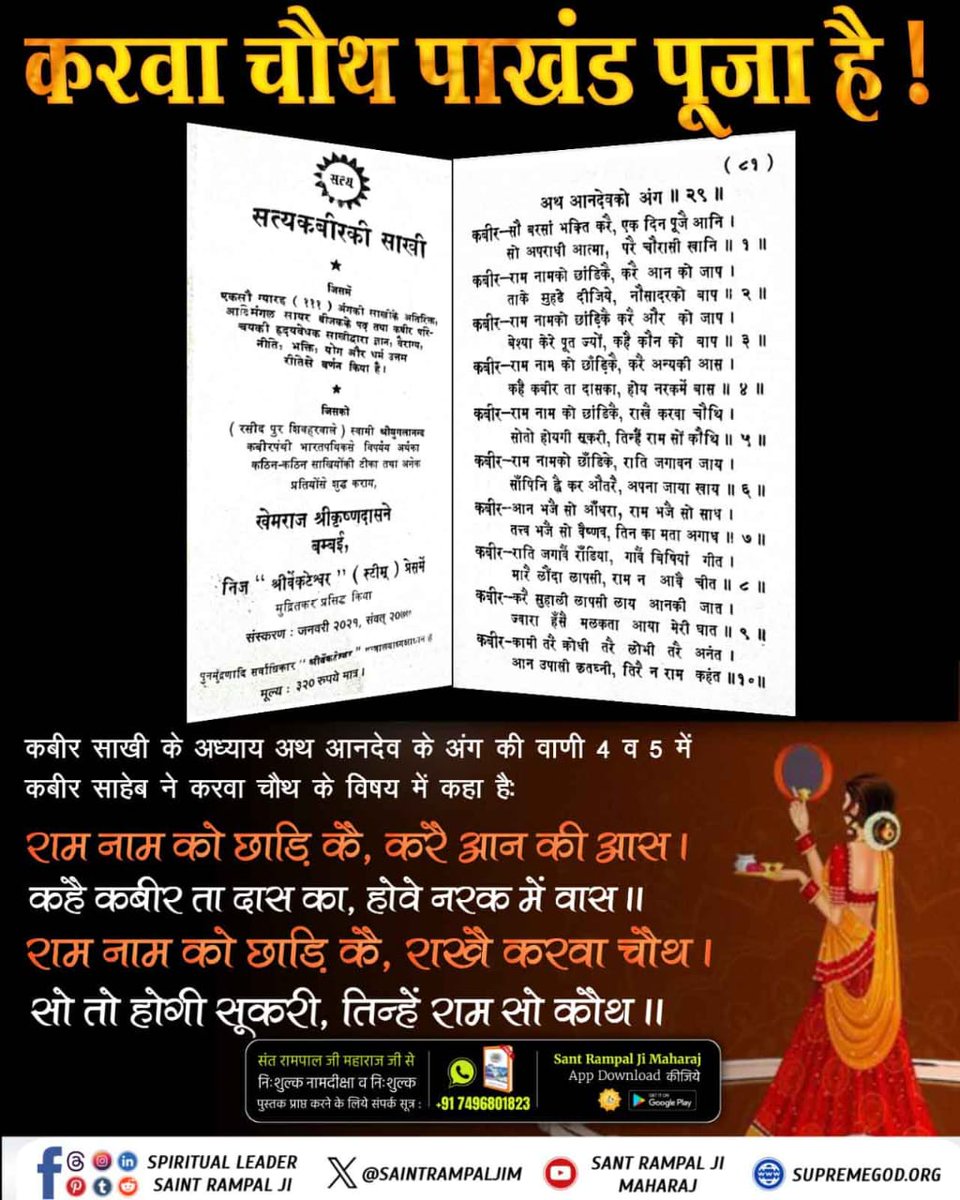 करवा चौथ पाखंड पूजा है !
सत्य
सत्यकबीरकी साखी
जिसमें
एकसौ ग्यारह ( १११ ) अंगकी साखीके अतिरिक्त,
आदिमंगल सायर बीजकके पद तथा कबीर परि-
चयकी हृदयवेधक साखीद्वारा ज्ञान, वैराग्य,
नीति, भक्ति, योग और धर्म उत्तम
रीतिसे वर्णन किया है।
जिसको
( रसीद पुर शिवहरवाले ) स्वामी श्रीयुगलानन्द
कबीरपंथी भारतपथिकसे विपर्यय अर्थका
कठिन-कठिन साखियोंकी टीका तथा अनेक
प्रतियोंसे शुद्ध कराय,
खेमराज श्रीकृष्णदासने
बम्बई,
निज “ श्रीवेंकटेश्वर ” ( स्टीम् ) प्रेसमें
मुद्रितकर प्रसिद्ध किया
संस्करण : जनवरी २०२१, संवत्
पुनर्मुद्रणादि सर्वाधिकार “ श्रीवेंकटेश्वर ”
मूल्य : ३२० रुपये मात्र।
( ८१ )
अथ आनदेवको अंग ॥ २९ ॥
कबीर–सौ बरसां भक्ति करै, एक दिन पूजै आनि ।
सो अपराधी आत्मा, परै चौरासी खानि ॥ १ ॥
कबीर–राम नामको छांडिकै, करै आन को जाप ।
ताके मुहडे दीजिये, नौसादरको बाप ॥ २ ॥
कबीर–राम नामको छाँड़िकै करै और को जाप ।
बेश्या केरे पूत ज्यों, कहै कौन को बाप ॥ ३ ॥
कबीर–राम नाम को छाँड़िकै, करै अन्यकी आस ।
कहै कबीर ता दासका, होय नरकमें बास ॥ ४ ॥
कबीर–राम नाम को छांडिकै, राखै करवा चौथि ।
सोतो होयगी सूकरी, तिन्हैं राम सों कौथि ॥ ५ ॥
कबीर–राम नामको छाँडिके, राति जगावन जाय ।
साँपिनि ह्वै कर औतरै, अपना जाया खाय ॥ ६ ॥
कबीर–आन भजै सो आँधरा, राम भजै सो साध ।
तत्त्व भजै सो वैष्णव, तिन का मता अगाध ॥ ७ ॥
कबीर–राति जगावैं राँडिया, गावैं बिषियां गीत ।
मारै लौंदा लापसी, राम न आवै चीत ॥ ८ ॥
कबीर–करै सुहाली लापसी लाय आनकी जात ।
ज्वारा हँसै मलकता आया मेरी घात ॥ ९ ॥
कबीर–कामी तरै क्रोधी तरै लोभी तरै अनंत ।
आन उपासी कृतघ्नी, तिरै न राम कहंत ॥१०॥
कबीर साखी के अध्याय अथ आनदेव के अंग की वाणी 4 व 5 में
कबीर साहेब ने करवा चौथ के विषय में कहा है:
राम नाम को छाड़ि कै, करै आन की आस ।
कहै कबीर ता दास का, होवे नरक में वास ॥
राम नाम को छाड़ि कै, राखै करवा चौथ ।
सो तो होगी सूकरी, तिन्हें राम सो कौथ ॥
संत रामपाल जी महाराज जी से
निःशुल्क नामदीक्षा व निःशुल्क
पुस्तक प्राप्त करने के लिये संपर्क सूत्र :
+91 7496801823
Sant Rampal Ji Maharaj
App Download कीजिये
GET IT ON
Google Play
SPIRITUAL LEADER
SAINT RAMPAL JI
@SAINTRAMPALJIM
SANT RAMPAL JI
MAHARAJ
SUPREMEGOD.ORG